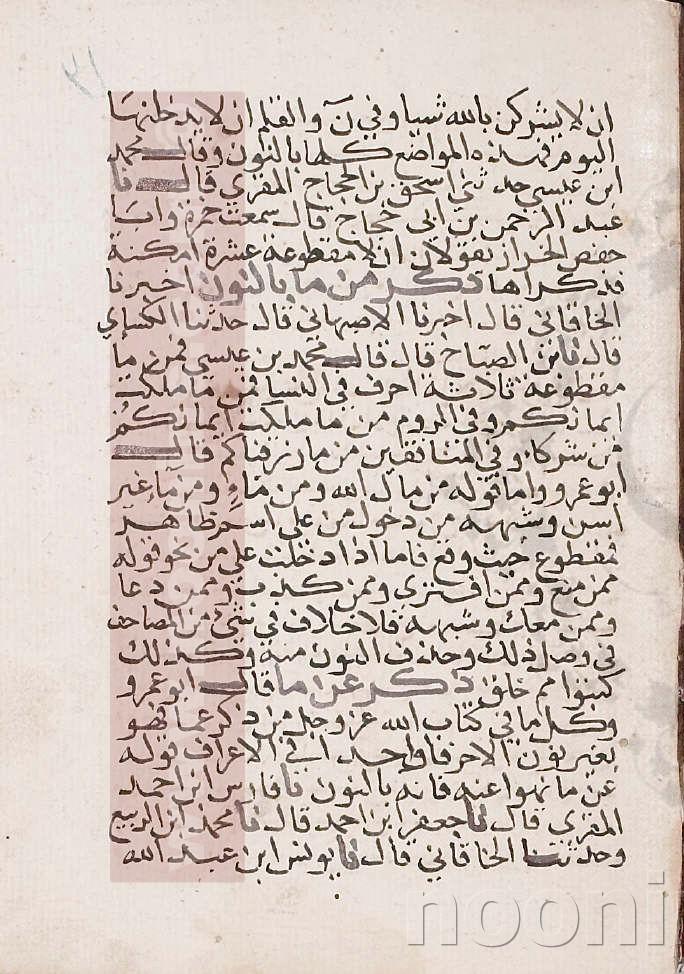 ٢١
ان لا يشركن بالله شيا وفي نٓ والقلم ان لا يدخلنها
اليوم فهذه المواضع كلها بالنون وقال محمد
ابن عيسي حدثني اسحق بن الحجاج المقري قال نا
عبد الرحمن بن ابي حجاج قال سمعت حمزة وابا
حفص الخراز يقولان ان لا مقطوعه عشرة امكنة
فذكراها ذكر من ما بالنون اخبرنا
الخاقاني قال اخبرنا الاصبهاني قال حدثنا الكساي
قال نا بن الصباح قال قال محمد بن عيسي فمن ما
مقطوعه ثلاثه احرف في النسا فمن ما ملكت
ايمانكم وفي الروم من ما ملكت ايمانكم
من شركاء وفي المنافقين من ما رزقناكم قال
ابو عمرو واما قوله من مال الله ومن ماءٍ ومن ماءٍ غير
اسن وشبهه من دخول من علي اسم ظاهر
فمقطوع حيث وقع فاما اذا دخلت علي من نحو قوله
ممن منع وممن افتري وممن كذب وممن دعا
وممن معك وشبهه فلا خلاف في شئ من المصاحف
في وصل ذلك وحذف النون منه وكذلك
كتبوا مم خلق ذكر عن ما قال ابو عمرو
وكل ما في كتاب الله عز وجل من ذكر عما فهو
بغير نون الا حرفا واحدا في الاعراف قوله
عن ما نهوا عنه فانه بالنون نا فارس ابن احمد
المقري قال نا جعفر ابن احمد قال نا محمد ابن الربيع
وحدثنا الخاقاني قال نا يونس ابن عبد الله
nooni